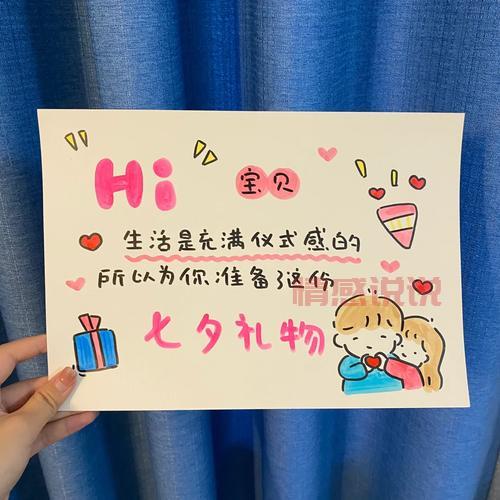 Hi 宝贝
生活是充满仪式感的
所以为你准备了这份
情感说说
七夕礼物